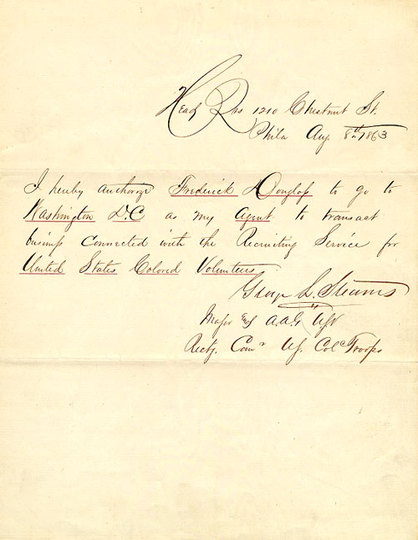 Head Qrs 1210 Chestnut St.
Phila Aug 8th 1863
I hereby authorize Frederick Douglass to go to
Washington D.C as my Agent to transact
business connected with the Recruiting Service for
United States Colored Volunteers
George L. Stearns
Major & A.A.G USV
Rectg. Comr US Cold Troops